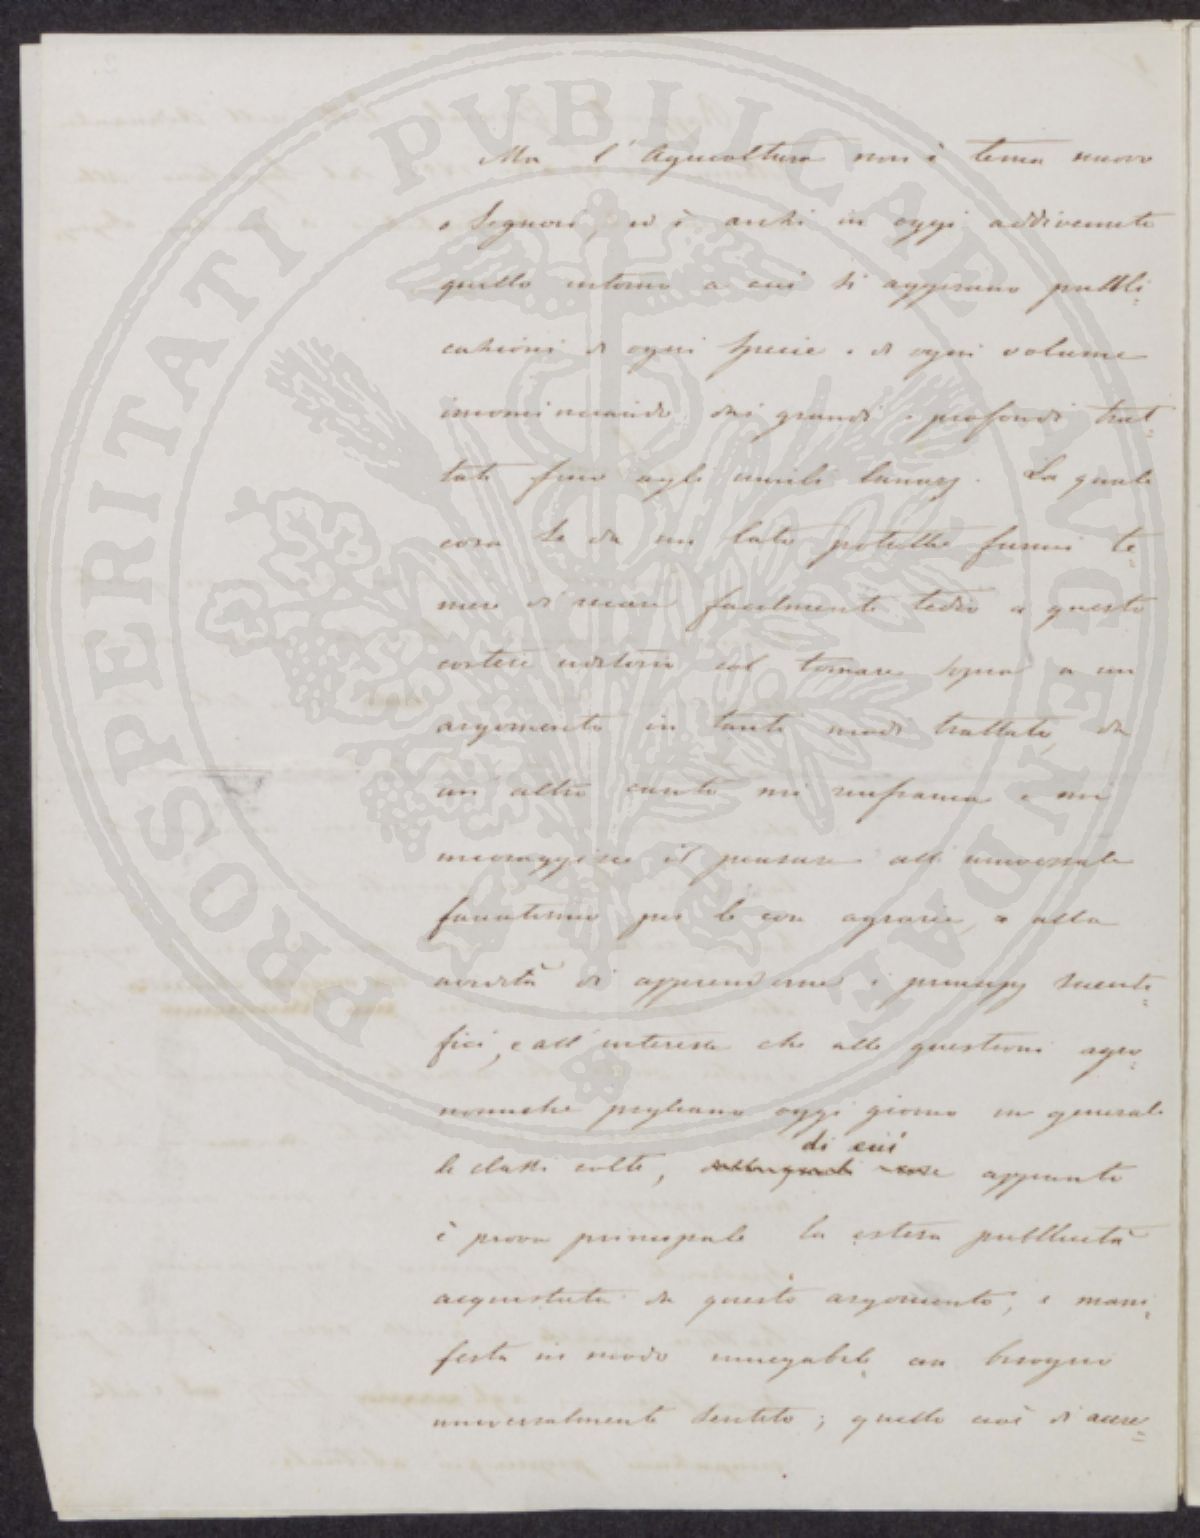 PROSPERITATI PUBLICAE AUGENDAE
Ma l'Agricoltura non è tema nuovo
o Signori, ed è anzi in oggi addivenuto
quello intorno a cui si aggirano pubbli=
cazioni di ogni specie e di ogni volume
incominciando dai grandi e profondi trat=
tati fino agli umili lunarj. La quale
cosa se da un lato potrebbe farmi te=
mere di recare facilmente tedio a questo
cortese uditorio col tornare sopra a un
argomento in tanti modi trattato, da
un altro canto mi rinfranca e mi
incoraggisce il pensare all'universale
fanatismo per le cose agrarie, e alla
avidità di apprenderne i principj scienti=
fici, e all'interesse che alle questioni agro=
nomiche pigliano oggi giorno in generale
di cui
le classi colte, appunto
è prova principale la estesa pubblicità
acquistata da questo argomento, e mani=
festa in modo innegabile un bisogno
universalmente sentito; quello cioè di accre=